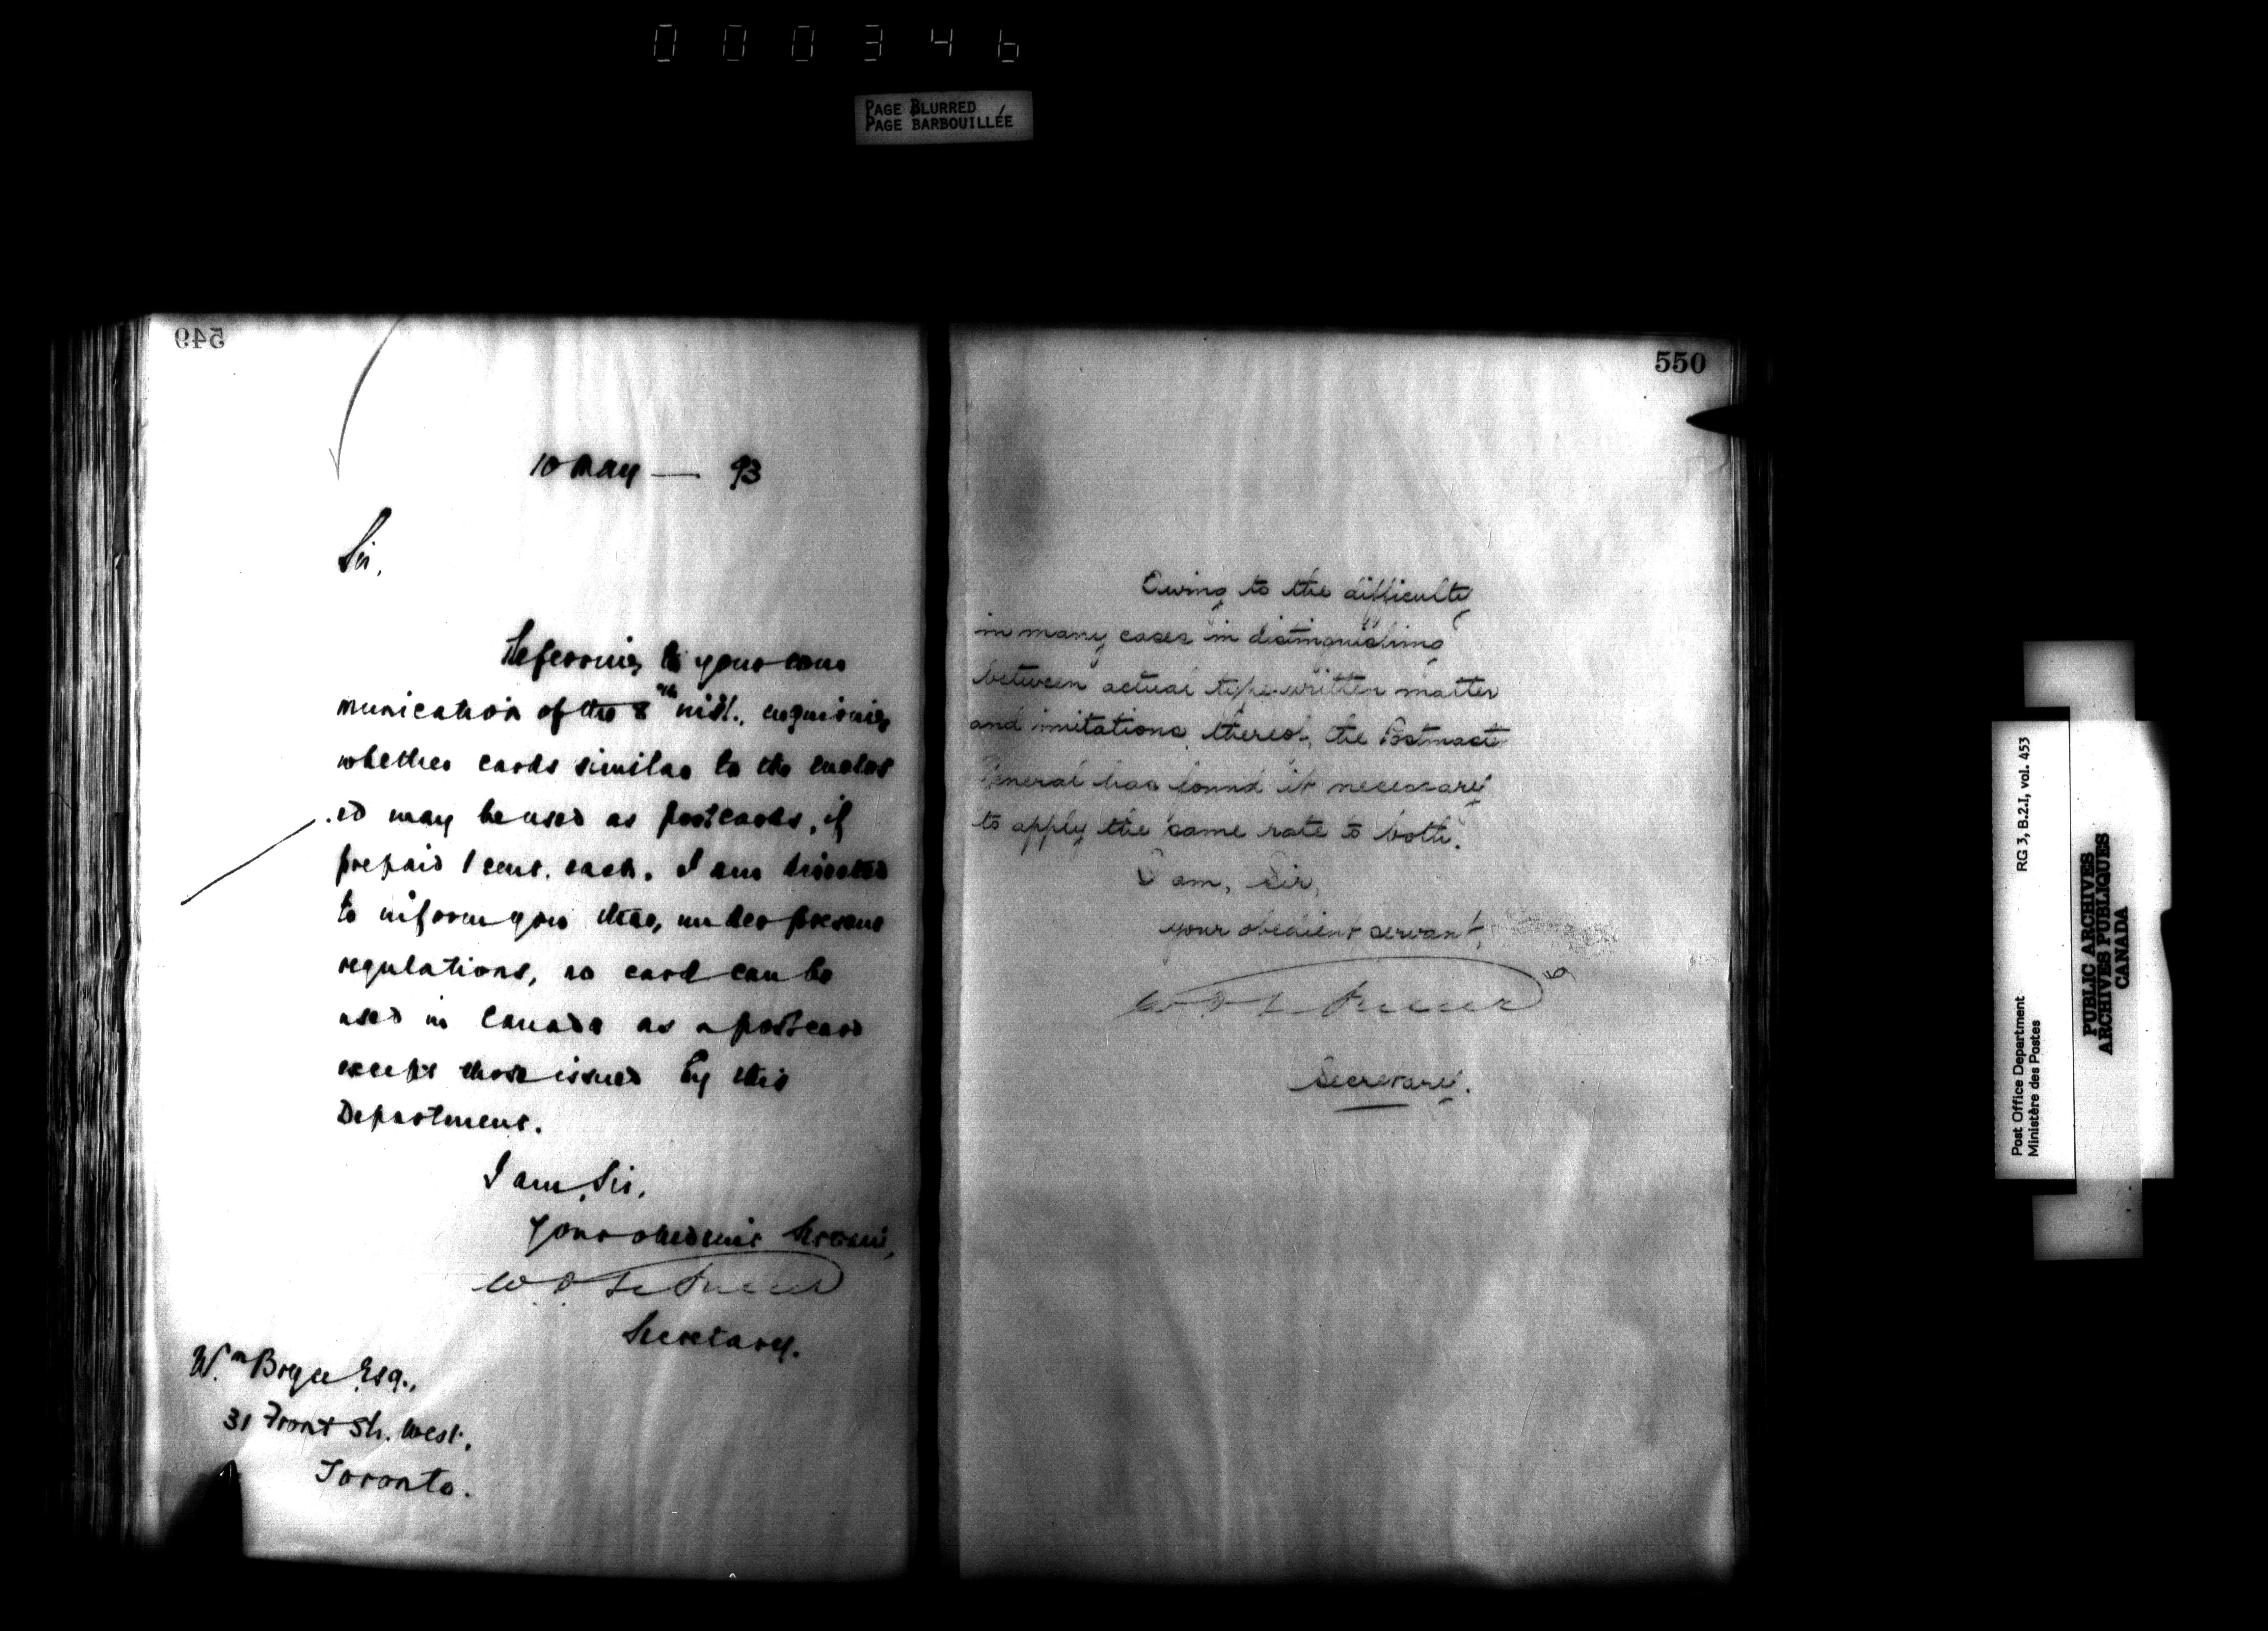 000346
PAGE BLURRED
PAGE BARBOUILLÉE
549
10 May — 93
Sir,
Referring to your com
munication of the 8th inst., enquiring
whether cards similar to the enclos
ed may be used as postcards, if
prepaid 1 cent. each. I am directed
to inform you that, under present
regulations, no card can be
used in Canada as a postcard
except those issued by this
Department.
I am, Sir,
Your obedient Servant,
Secretary.
Wm Bryce Esq.,
31 Front St. West,
Toronto.
550
Owing to the difficulty
in many cases in distinguishing
between actual type-written matter
and imitations thereof, the Postmaster
General has found it necessary
to apply the same rate to both.
I am, Sir,
your obedient servant,
Secretary.
Post Office Department
Ministère des Postes
RG 3, B.2.I, vol. 453
PUBLIC ARCHIVES
ARCHIVES PUBLIQUES
CANADA